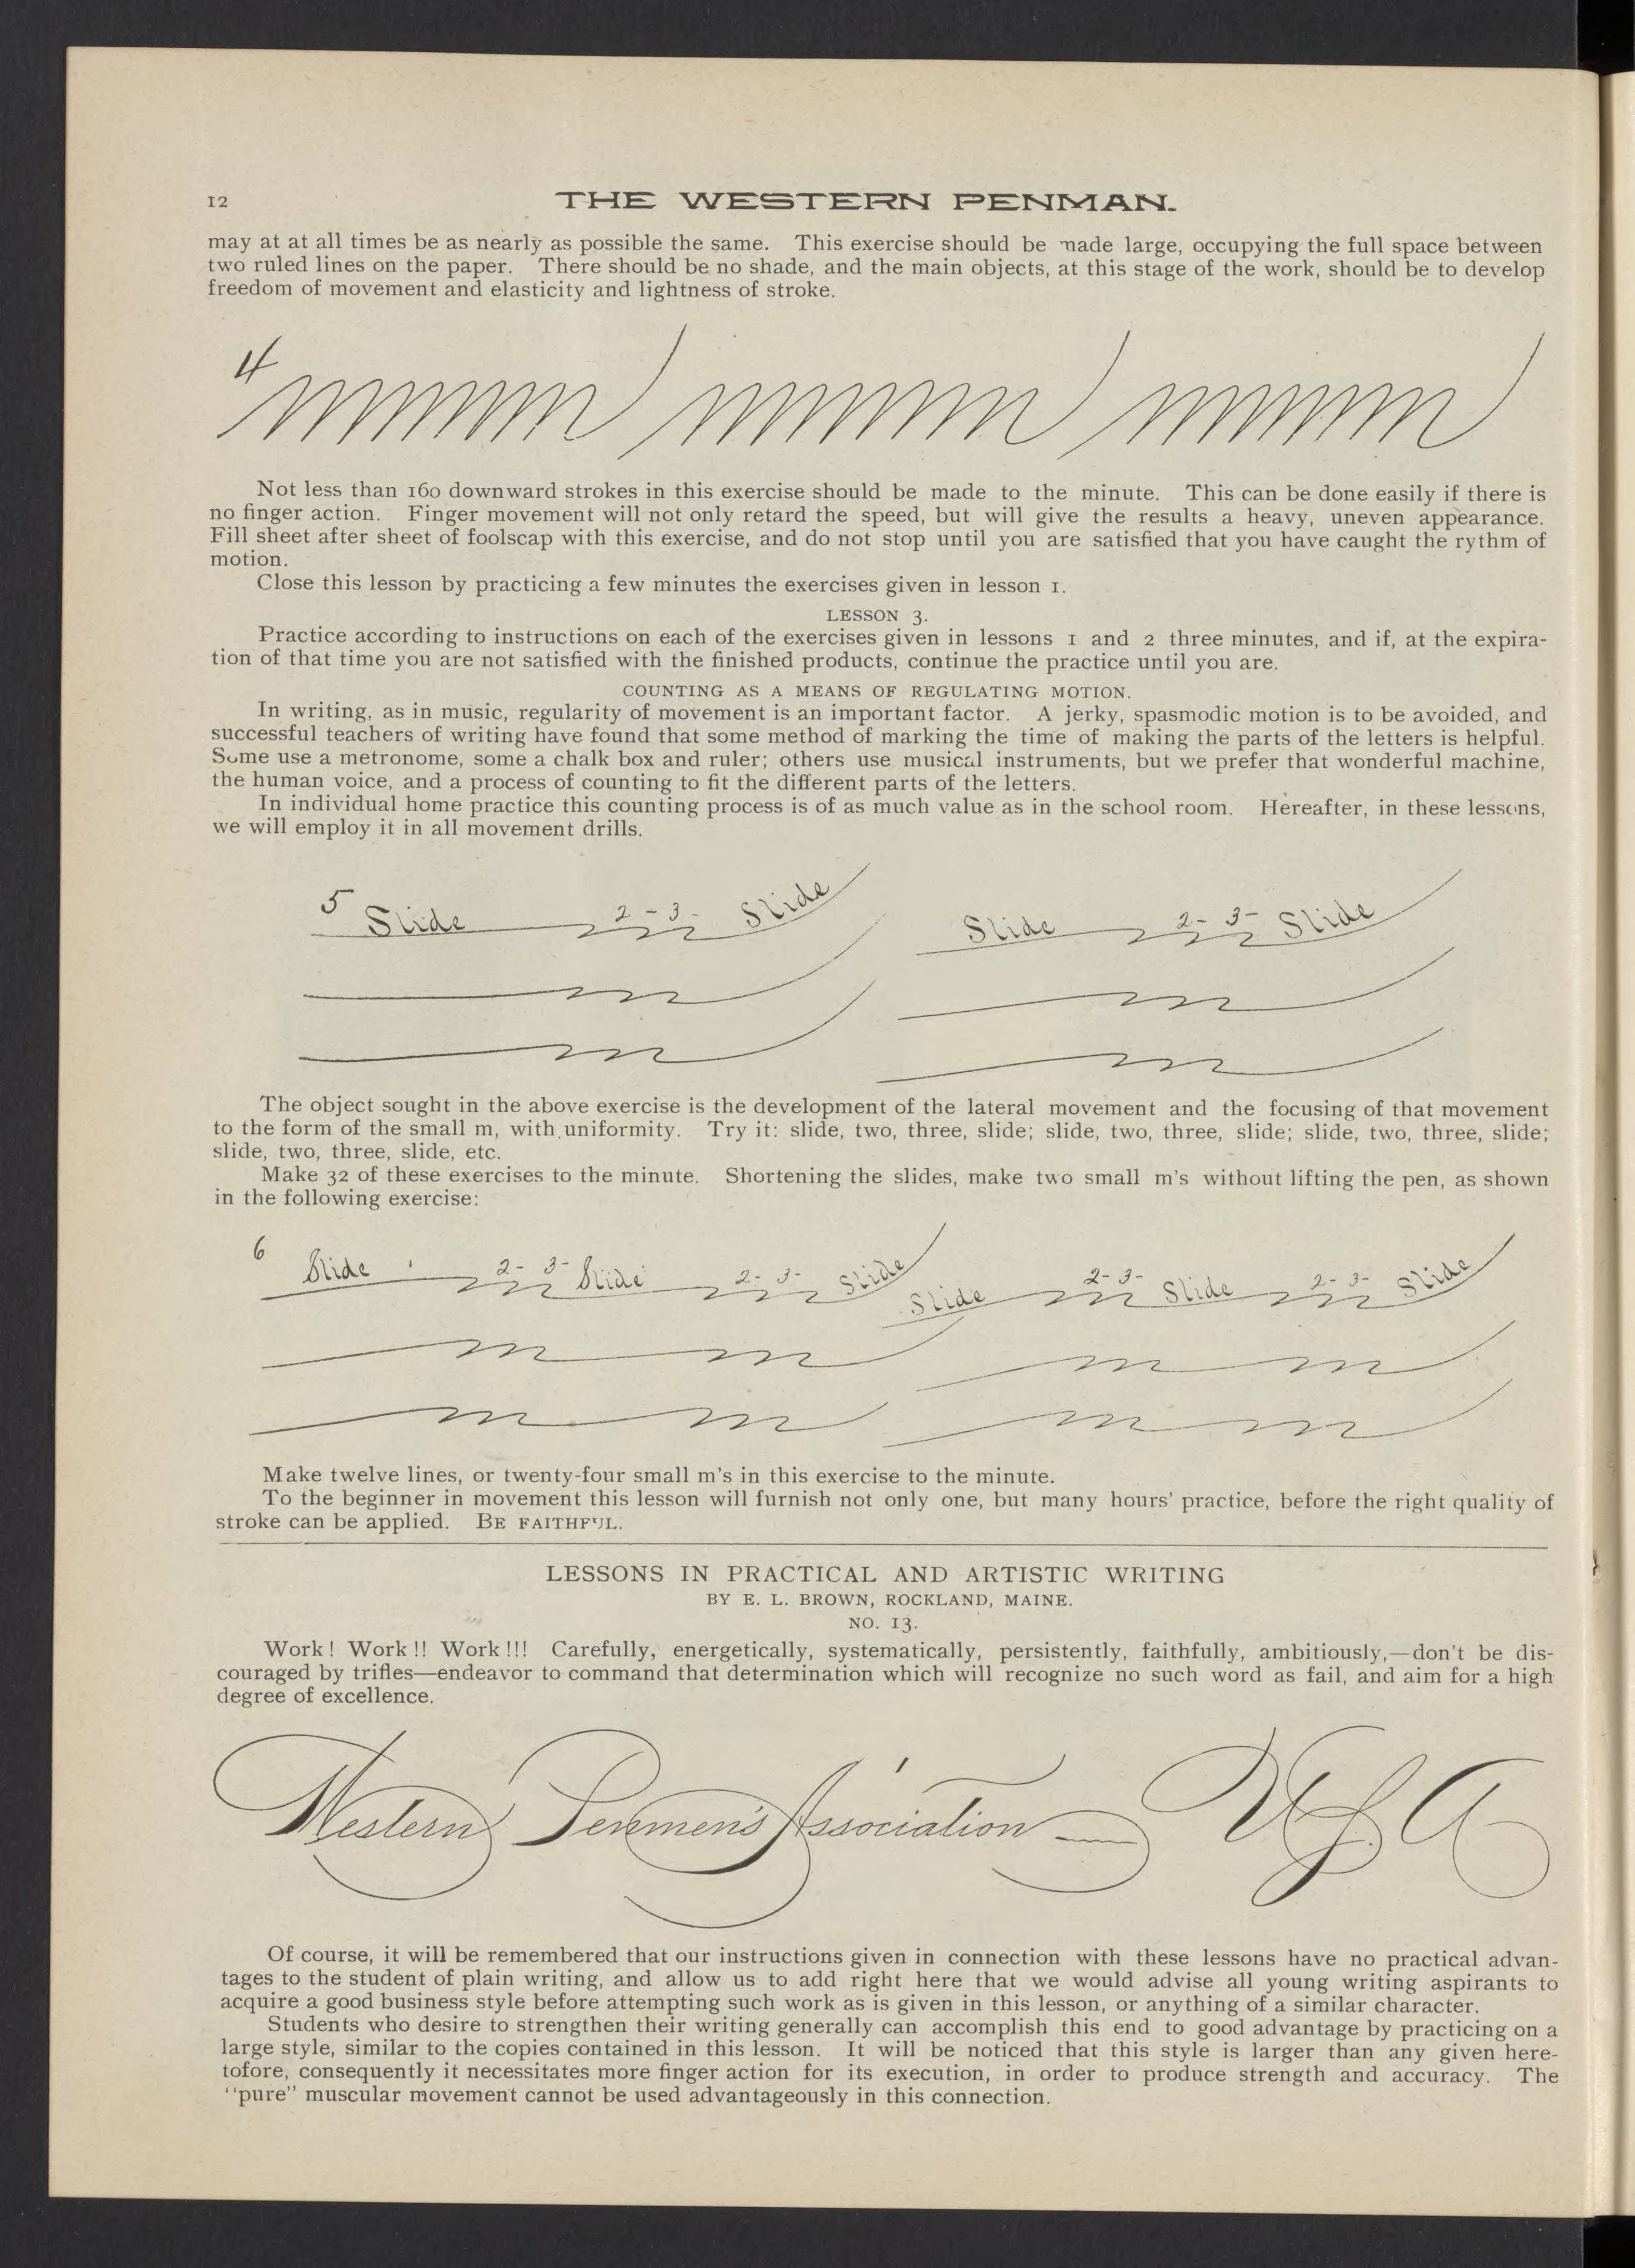 12
THE WESTERN PENMAN.
may at at all times be as nearly as possible the same. This exercise should be made large, occupying the full space between
two ruled lines on the paper. There should be no shade, and the main objects, at this stage of the work, should be to develop
freedom of movement and elasticity and lightness of stroke.
4
Not less than 160 downward strokes in this exercise should be made to the minute. This can be done easily if there is
no finger action. Finger movement will not only retard the speed, but will give the results a heavy, uneven appearance.
Fill sheet after sheet of foolscap with this exercise, and do not stop until you are satisfied that you have caught the rythm of
motion.
Close this lesson by practicing a few minutes the exercises given in lesson 1.
LESSON 3.
Practice according to instructions on each of the exercises given in lessons 1 and 2 three minutes, and if, at the expira-
tion of that time you are not satisfied with the finished products, continue the practice until you are.
COUNTING AS A MEANS OF REGULATING MOTION.
In writing, as in music, regularity of movement is an important factor. A jerky, spasmodic motion is to be avoided, and
successful teachers of writing have found that some method of marking the time of making the parts of the letters is helpful.
Some use a metronome, some a chalk box and ruler; others use musical instruments, but we prefer that wonderful machine,
the human voice, and a process of counting to fit the different parts of the letters.
In individual home practice this counting process is of as much value as in the school room. Hereafter, in these lessons,
we will employ it in all movement drills.
5 Slide 2 - 3 - Slide Slide 2 - 3 - Slide
m m
m m
The object sought in the above exercise is the development of the lateral movement and the focusing of that movement
to the form of the small m, with uniformity. Try it: slide, two, three, slide; slide, two, three, slide; slide, two, three, slide;
slide, two, three, slide, etc.
Make 32 of these exercises to the minute. Shortening the slides, make two small m's without lifting the pen, as shown
in the following exercise:
6 Slide 2 - 3 - Slide 2 - 3 - Slide Slide 2 - 3 - Slide 2 - 3 - Slide
m m m m
m m m m
Make twelve lines, or twenty-four small m's in this exercise to the minute.
To the beginner in movement this lesson will furnish not only one, but many hours' practice, before the right quality of
stroke can be applied. BE FAITHFUL.
LESSONS IN PRACTICAL AND ARTISTIC WRITING
BY E. L. BROWN, ROCKLAND, MAINE.
NO. 13.
Work! Work!! Work!!! Carefully, energetically, systematically, persistently, faithfully, ambitiously,—don't be dis-
couraged by trifles—endeavor to command that determination which will recognize no such word as fail, and aim for a high
degree of excellence.
Western Penmen's Association — U S A
Of course, it will be remembered that our instructions given in connection with these lessons have no practical advan-
tages to the student of plain writing, and allow us to add right here that we would advise all young writing aspirants to
acquire a good business style before attempting such work as is given in this lesson, or anything of a similar character.
Students who desire to strengthen their writing generally can accomplish this end to good advantage by practicing on a
large style, similar to the copies contained in this lesson. It will be noticed that this style is larger than any given here-
tofore, consequently it necessitates more finger action for its execution, in order to produce strength and accuracy. The
"pure" muscular movement cannot be used advantageously in this connection.